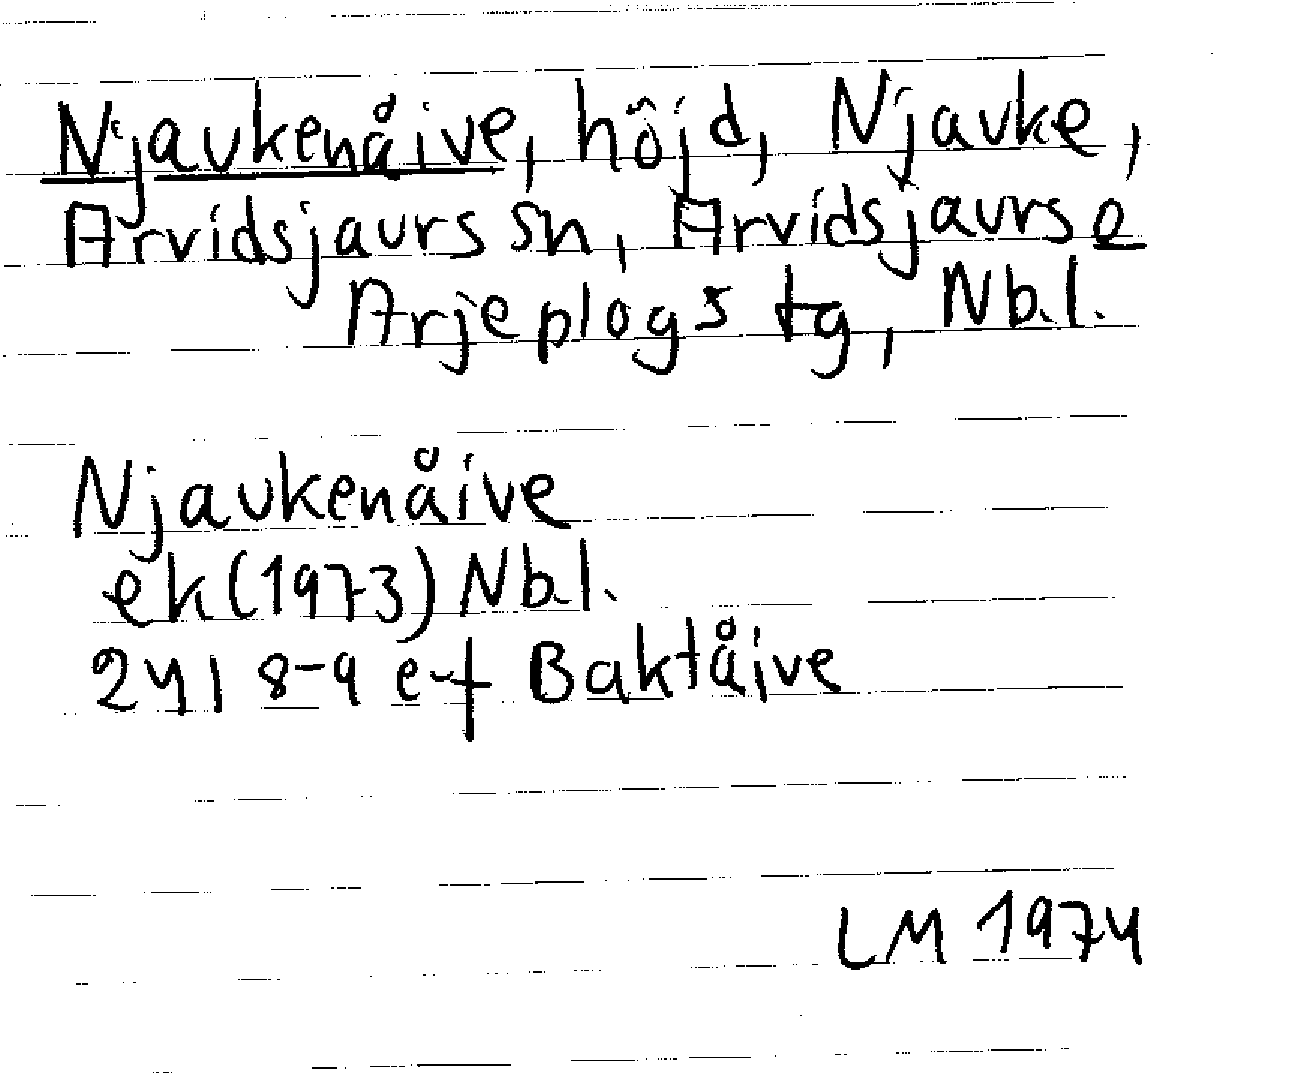 Njavkenåive, höjd, Njavke,
Arvidsjaurs sn, Arvidsjaurs o
Arjeplogs tg, Nb.l.
Njavkenåive
ek (1973) Nb.l.
24I 8-9 e-f Baktåive
LM 1974